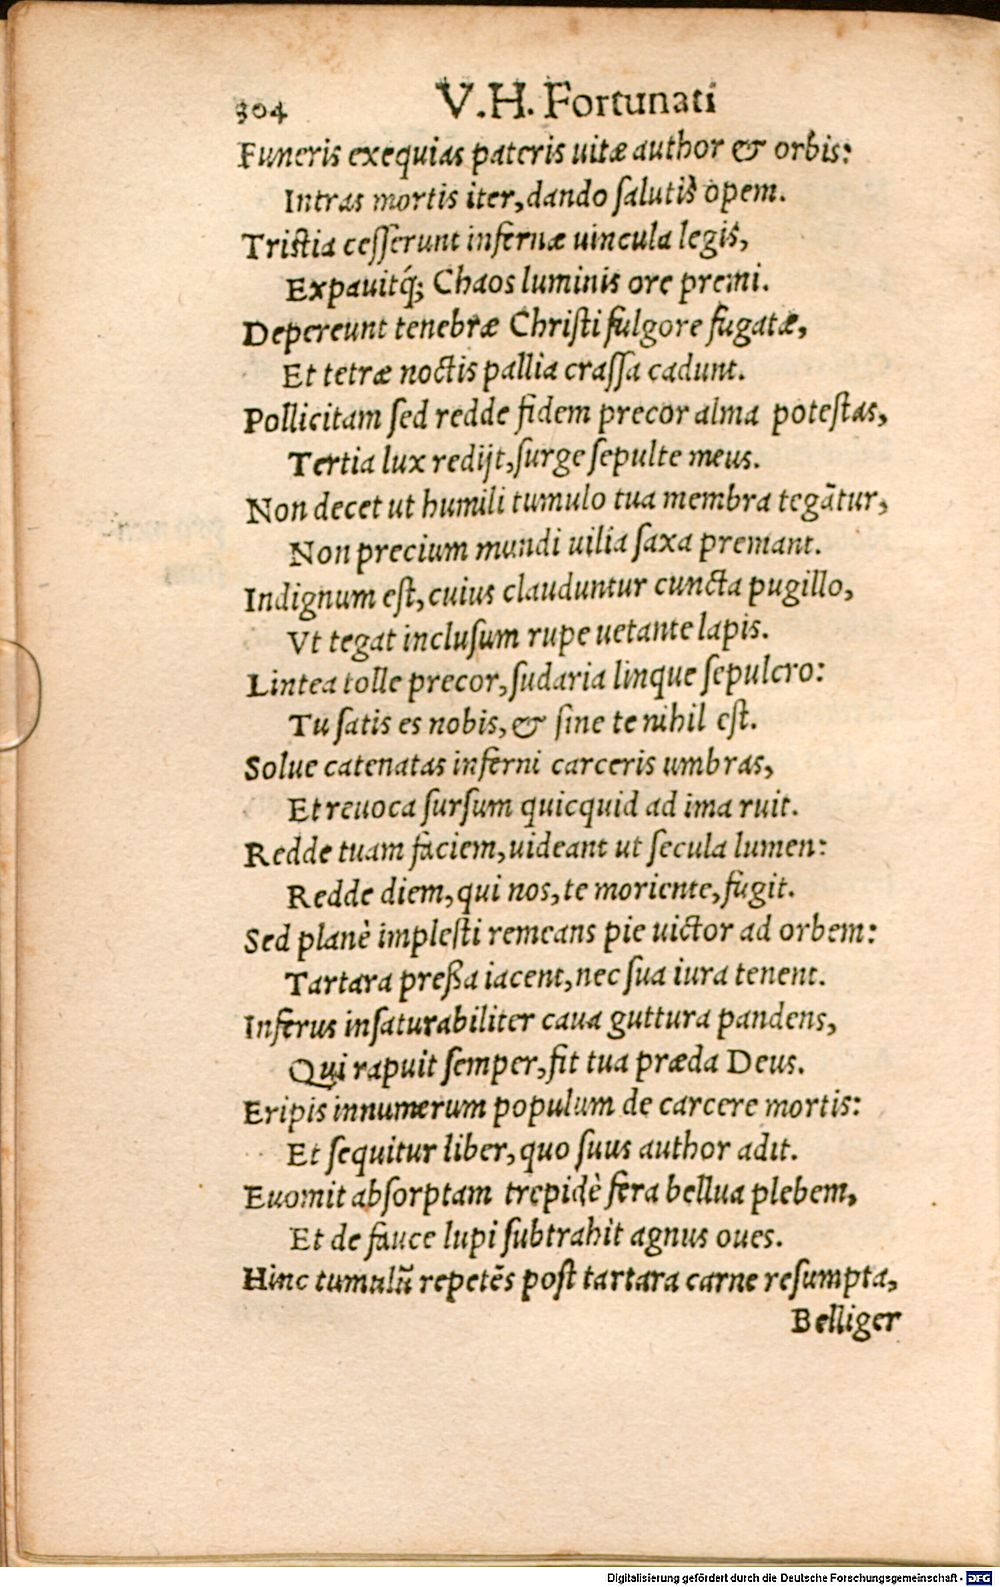 304 V.H. Fortunati
Funeris exequias pateris uitæ author & orbis:
Intras mortis iter, dando ſalutis opem.
Triſtia ceſſerunt infernæ uincula legis,
Expauitq́; Chaos luminis ore premi.
Depereunt tenebræ Chriſti fulgore fugatæ,
Et tetræ noctis pallia craſſa cadunt.
Pollicitam ſed redde fidem precor alma poteſtas,
Tertia lux redijt, ſurge ſepulte meus.
Non decet ut humili tumulo tua membra tegãtur,
Non precium mundi uilia ſaxa premant.
Indignum eſt, cuius clauduntur cuncta pugillo,
Vt tegat incluſum rupe uetante lapis.
Lintea tolle precor, ſudaria linque ſepulcro:
Tu ſatis es nobis, & ſine te nihil eſt.
Solue catenatas inferni carceris umbras,
Et reuoca ſurſum quicquid ad ima ruit.
Redde tuam faciem, uideant ut ſecula lumen:
Redde diem, qui nos, te moriente, fugit.
Sed planè impleſti remeans pie uictor ad orbem:
Tartara preßa iacent, nec ſua iura tenent.
Inferus inſaturabiliter caua guttura pandens,
Qui rapuit ſemper, fit tua præda Deus.
Eripis innumerum populum de carcere mortis:
Et ſequitur liber, quo ſuus author adit.
Euomit abſorptam trepidè fera bellua plebem,
Et de fauce lupi ſubtrahit agnus oues.
Hinc tumulũ repetẽs poſt tartara carne reſumpta,
Belliger
Digitalisierung gefördert durch die Deutsche Forschungsgemeinschaft - DFG